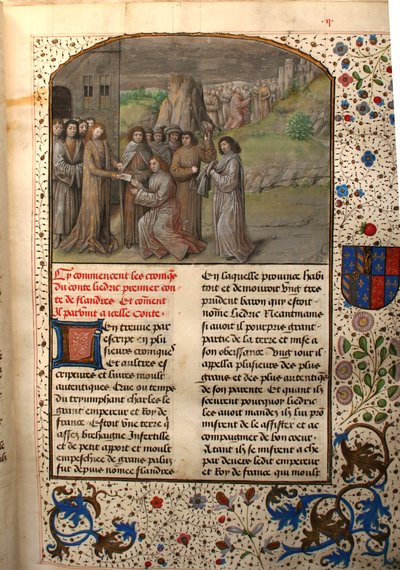 Cy commencent les croniqs
du conte liedric premier con
te de flandres. Et comẽt
il parvint a icelle Conte.
En treuve par
escript en plu
sieurs cronicqs
Et aultres es
criptures et livres moult
autentiques Que ou temps
du tryumphant charles le
grant empereur et Roy de
france. Estoit une terre q̃
assez brehaigne Infertille
et de petit apport et moult
empeschee de grans paluz
fut depuis nom̃ee flandres
En laquelle province habi
toit et demouroit Ung tres
prudent baron qui estoit
nom̃e liedric Neantmains
si avoit il pourpris grant
partie de la terre et mise a
son obeissance. Ung iour il
appella plusieurs des plus
grans et des plus autentiqs
de son parente. Et quant ilz
sceurent pourquoy liedric
les avoit mandez ilz luy pro
mistrent de le assister et ac
compaignier de bon coeur.
Atant ilz se misrent a che
par devers ledit empereur
et Roy de france qui moult